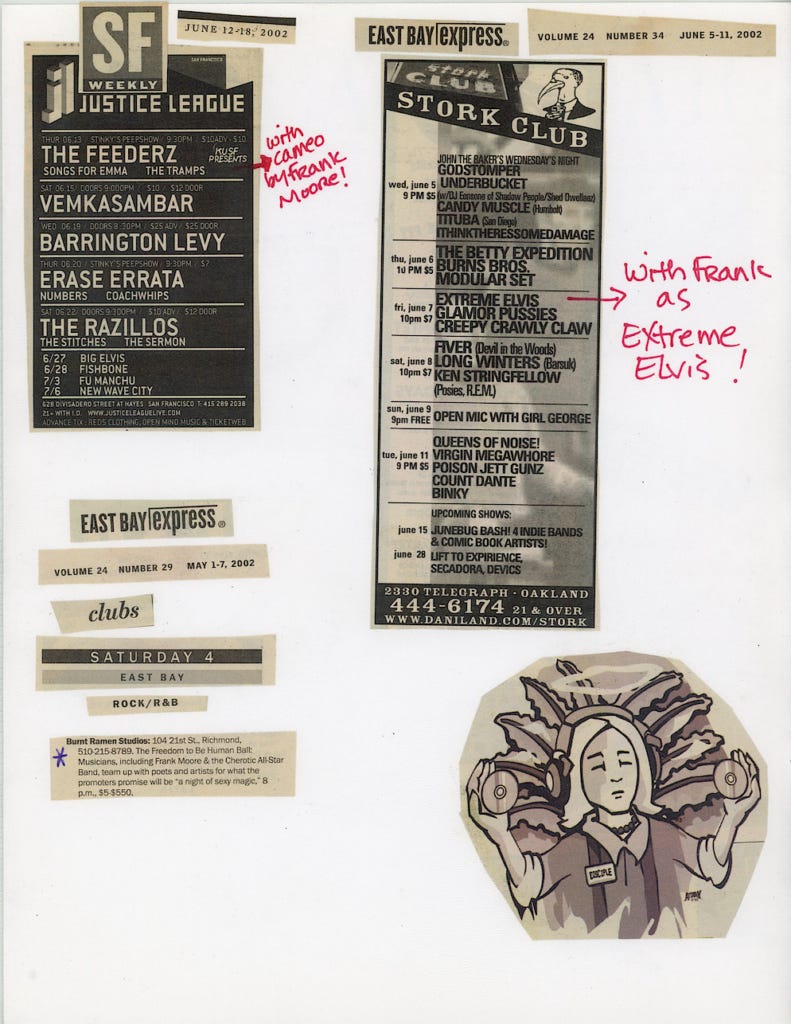 SF
WEEKLY
JUNE 12-18, 2002
SAN FRANCISCO
JUSTICE LEAGUE
THUR 06.13 / STINKY'S PEEPSHOW / 9:30PM / $10ADV - $10
THE FEEDERZ
KUSF PRESENTS
SONGS FOR EMMA THE TRAMPS
SAT 06/15/ DOORS 9:00PM / $10 / $12 DOOR
VEMKASAMBAR
WED 06.19 / DOORS 8:30PM / $25 ADV/ $25 DOOR
BARRINGTON LEVY
THUR 06.20 / STINKY'S PEEPSHOW / 9:30PM / $7
ERASE ERRATA
NUMBERS COACHWHIPS
SAT 06.22/ DOORS 9:30PM / $10 ADV/ $12 DOOR
THE RAZILLOS
THE STITCHES THE SERMON
6/27 BIG ELVIS
6/28 FISHBONE
7/3 FU MANCHU
7/6 NEW WAVE CITY
628 DIVISADERO STREET AT HAYES SAN FRANCISCO T: 415 289 2038
21+ WITH I.D. WWW.JUSTICELEAGUELIVE.COM
ADVANCE TIX: REDS CLOTHING, OPEN MIND MUSIC & TICKETWEB
with
cameo
by Frank
Moore!
EAST BAY express®
VOLUME 24 NUMBER 34 JUNE 5-11, 2002
Stork
CLUB
STORK CLUB
JOHN THE BAKER'S WEDNESDAY'S NIGHT
GODSTOMPER
wed, june 5 UNDERBUCKET
9 PM $5 (w/DJ Eonsone of Shadow People/Shed Dwellaaz)
CANDY MUSCLE (Humbolt)
TITUBA (San Diego)
ITHINKTHERESSOMEDAMAGE
thu, june 6 THE BETTY EXPEDITION
10 PM $5 BURNS BROS.
MODULAR SET
fri, june 7 EXTREME ELVIS
10pm $7 GLAMOR PUSSIES
CREEPY CRAWLY CLAW
FIVER (Devil in the Woods)
sat, june 8 LONG WINTERS (Barsuk)
10pm $7 KEN STRINGFELLOW
(Posies, R.E.M.)
sun, june 9
9pm FREE OPEN MIC WITH GIRL GEORGE
QUEENS OF NOISE!
tue, june 11 VIRGIN MEGAWHORE
9 PM $5 POISON JETT GUNZ
COUNT DANTE
BINKY
UPCOMING SHOWS:
june 15 JUNEBUG BASH! 4 INDIE BANDS
& COMIC BOOK ARTISTS!
june 28 LIFT TO EXPIRIENCE,
SECADORA, DEVICS
2330 TELEGRAPH · OAKLAND
444-6174 21 & OVER
WWW.DANILAND.COM/STORK
with Frank
as
Extreme
Elvis !
EAST BAY express®
VOLUME 24 NUMBER 29 MAY 1-7, 2002
clubs
SATURDAY 4
EAST BAY
ROCK/R&B
Burnt Ramen Studios: 104 21st St., Richmond,
510-215-8789. The Freedom to Be Human Ball:
Musicians, including Frank Moore & the Cherotic All-Star
Band, team up with poets and artists for what the
promoters promise will be "a night of sexy magic," 8
p.m., $5-$550.
DISCIPLE